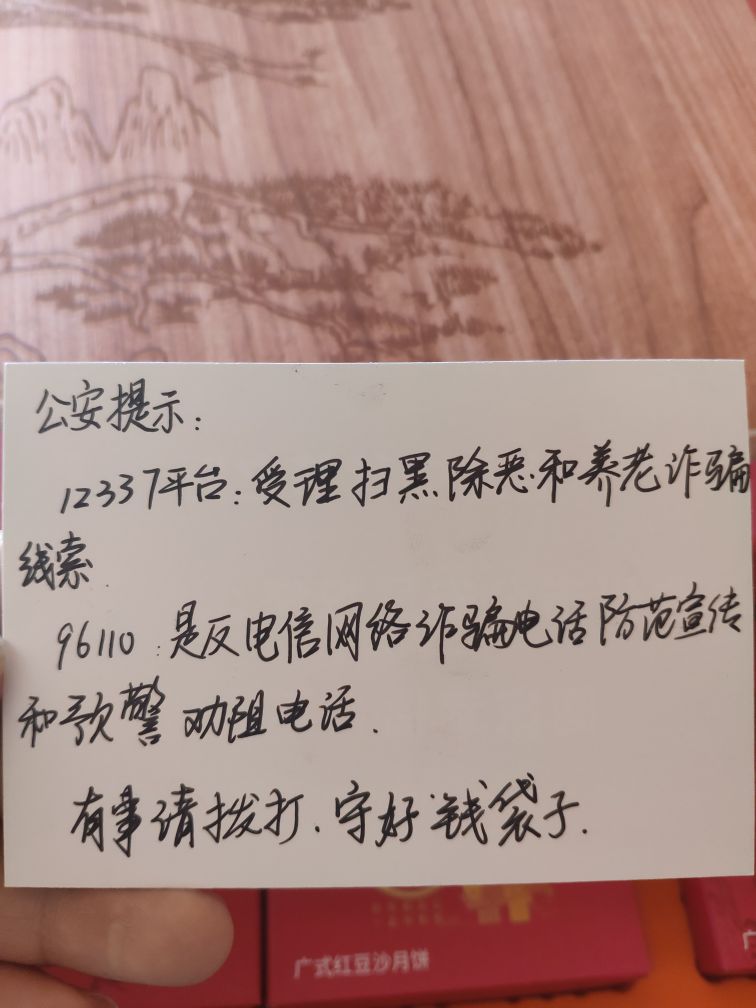 公安提示:
12337平台:受理扫黑除恶和养老诈骗
线索.
96110:是反电信网络诈骗电话防范宣传
和预警劝阻电话.
有事请拨打.守好钱袋子.
广式红豆沙月饼
广